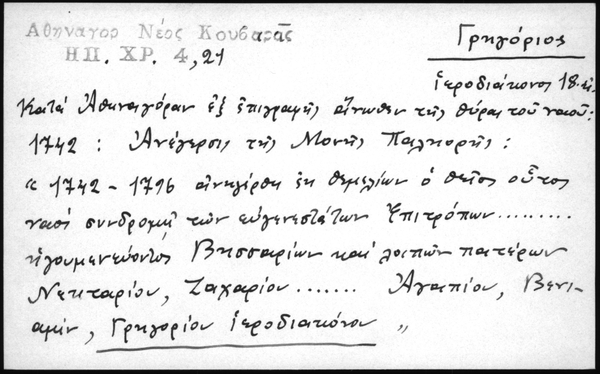 Αθηναγορ Νέος Κουβαρᾶς
ΗΠ. ΧΡ. 4, 21
Γρηγόριος
ἱεροδιάκονος 18. αἰ.
Κατά Ἀθηναγόραν ἐξ ἐπιγραφῆς ἄνωθεν τῆς θύρας τοῦ ναοῦ:
1742 : Ἀνέγερσις τῆς Μονῆς
« 1742 - 1796 ἀνηγέρθη ἐκ θεμελίων ὁ θεῖος οὗτος
ναός συνδρομῇ τῶν εὐγενεστάτων Ἐπιτρόπων.........
ἡγουμενεύοντος Βησσαρίων καί λοιπῶν πατέρων
Νεκταρίου, Ζαχαρίου ....... Ἀγαπίου, Βενι-
αμίν, Γρηγορίου ἱεροδιακόνου »